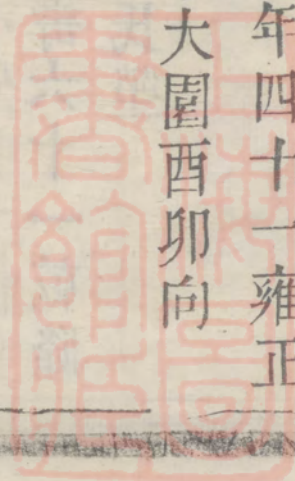 年四十一雍正
大園酉卯向